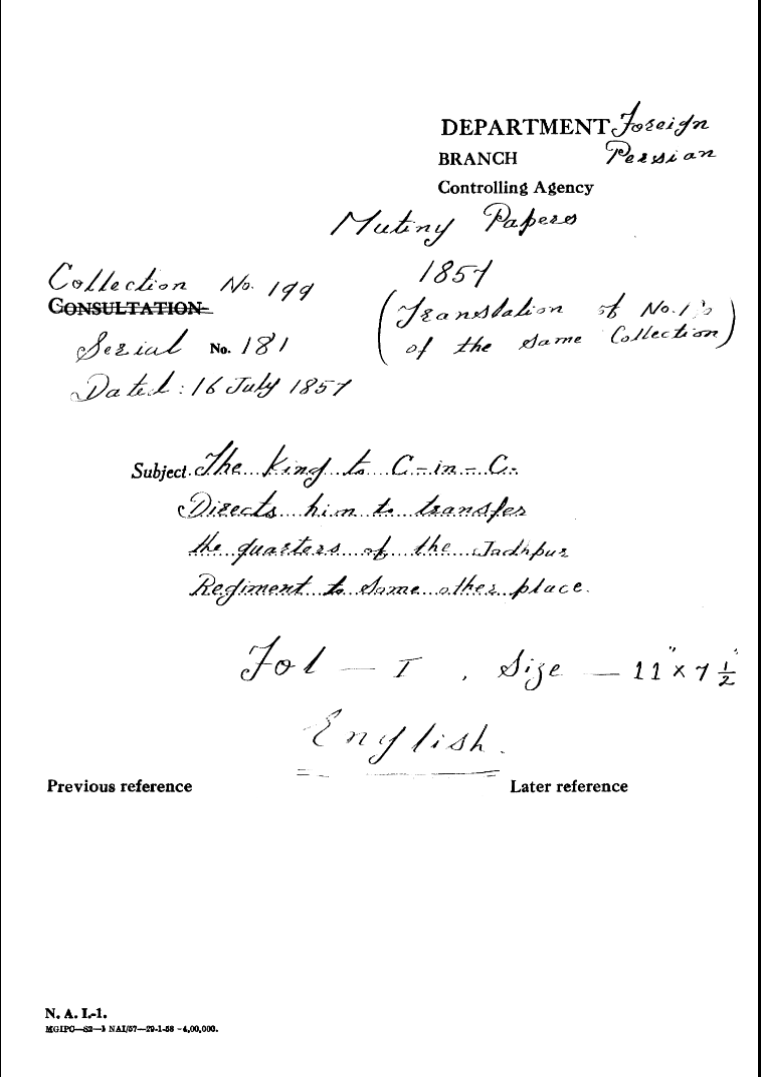 DEPARTMENT Foreign
BRANCH Persian
Controlling Agency
Mutiny Papers
1857
Collection No. 199
CONSULTATION
(Translation of No. 1's
of the same Collection)
Serial No. 181
Dated: 16 July 1857
Subject. The King to C-in-C.
Directs him to transfer
the quarters of the Jadhpur
Regiment to some other place.
Fol — I, Size — 11" x 7 1/2"
English.
Previous reference
Later reference
N. A. I.-1.
MGIPC—S2—3 NAI/57—29-1-58 -4,00,000.